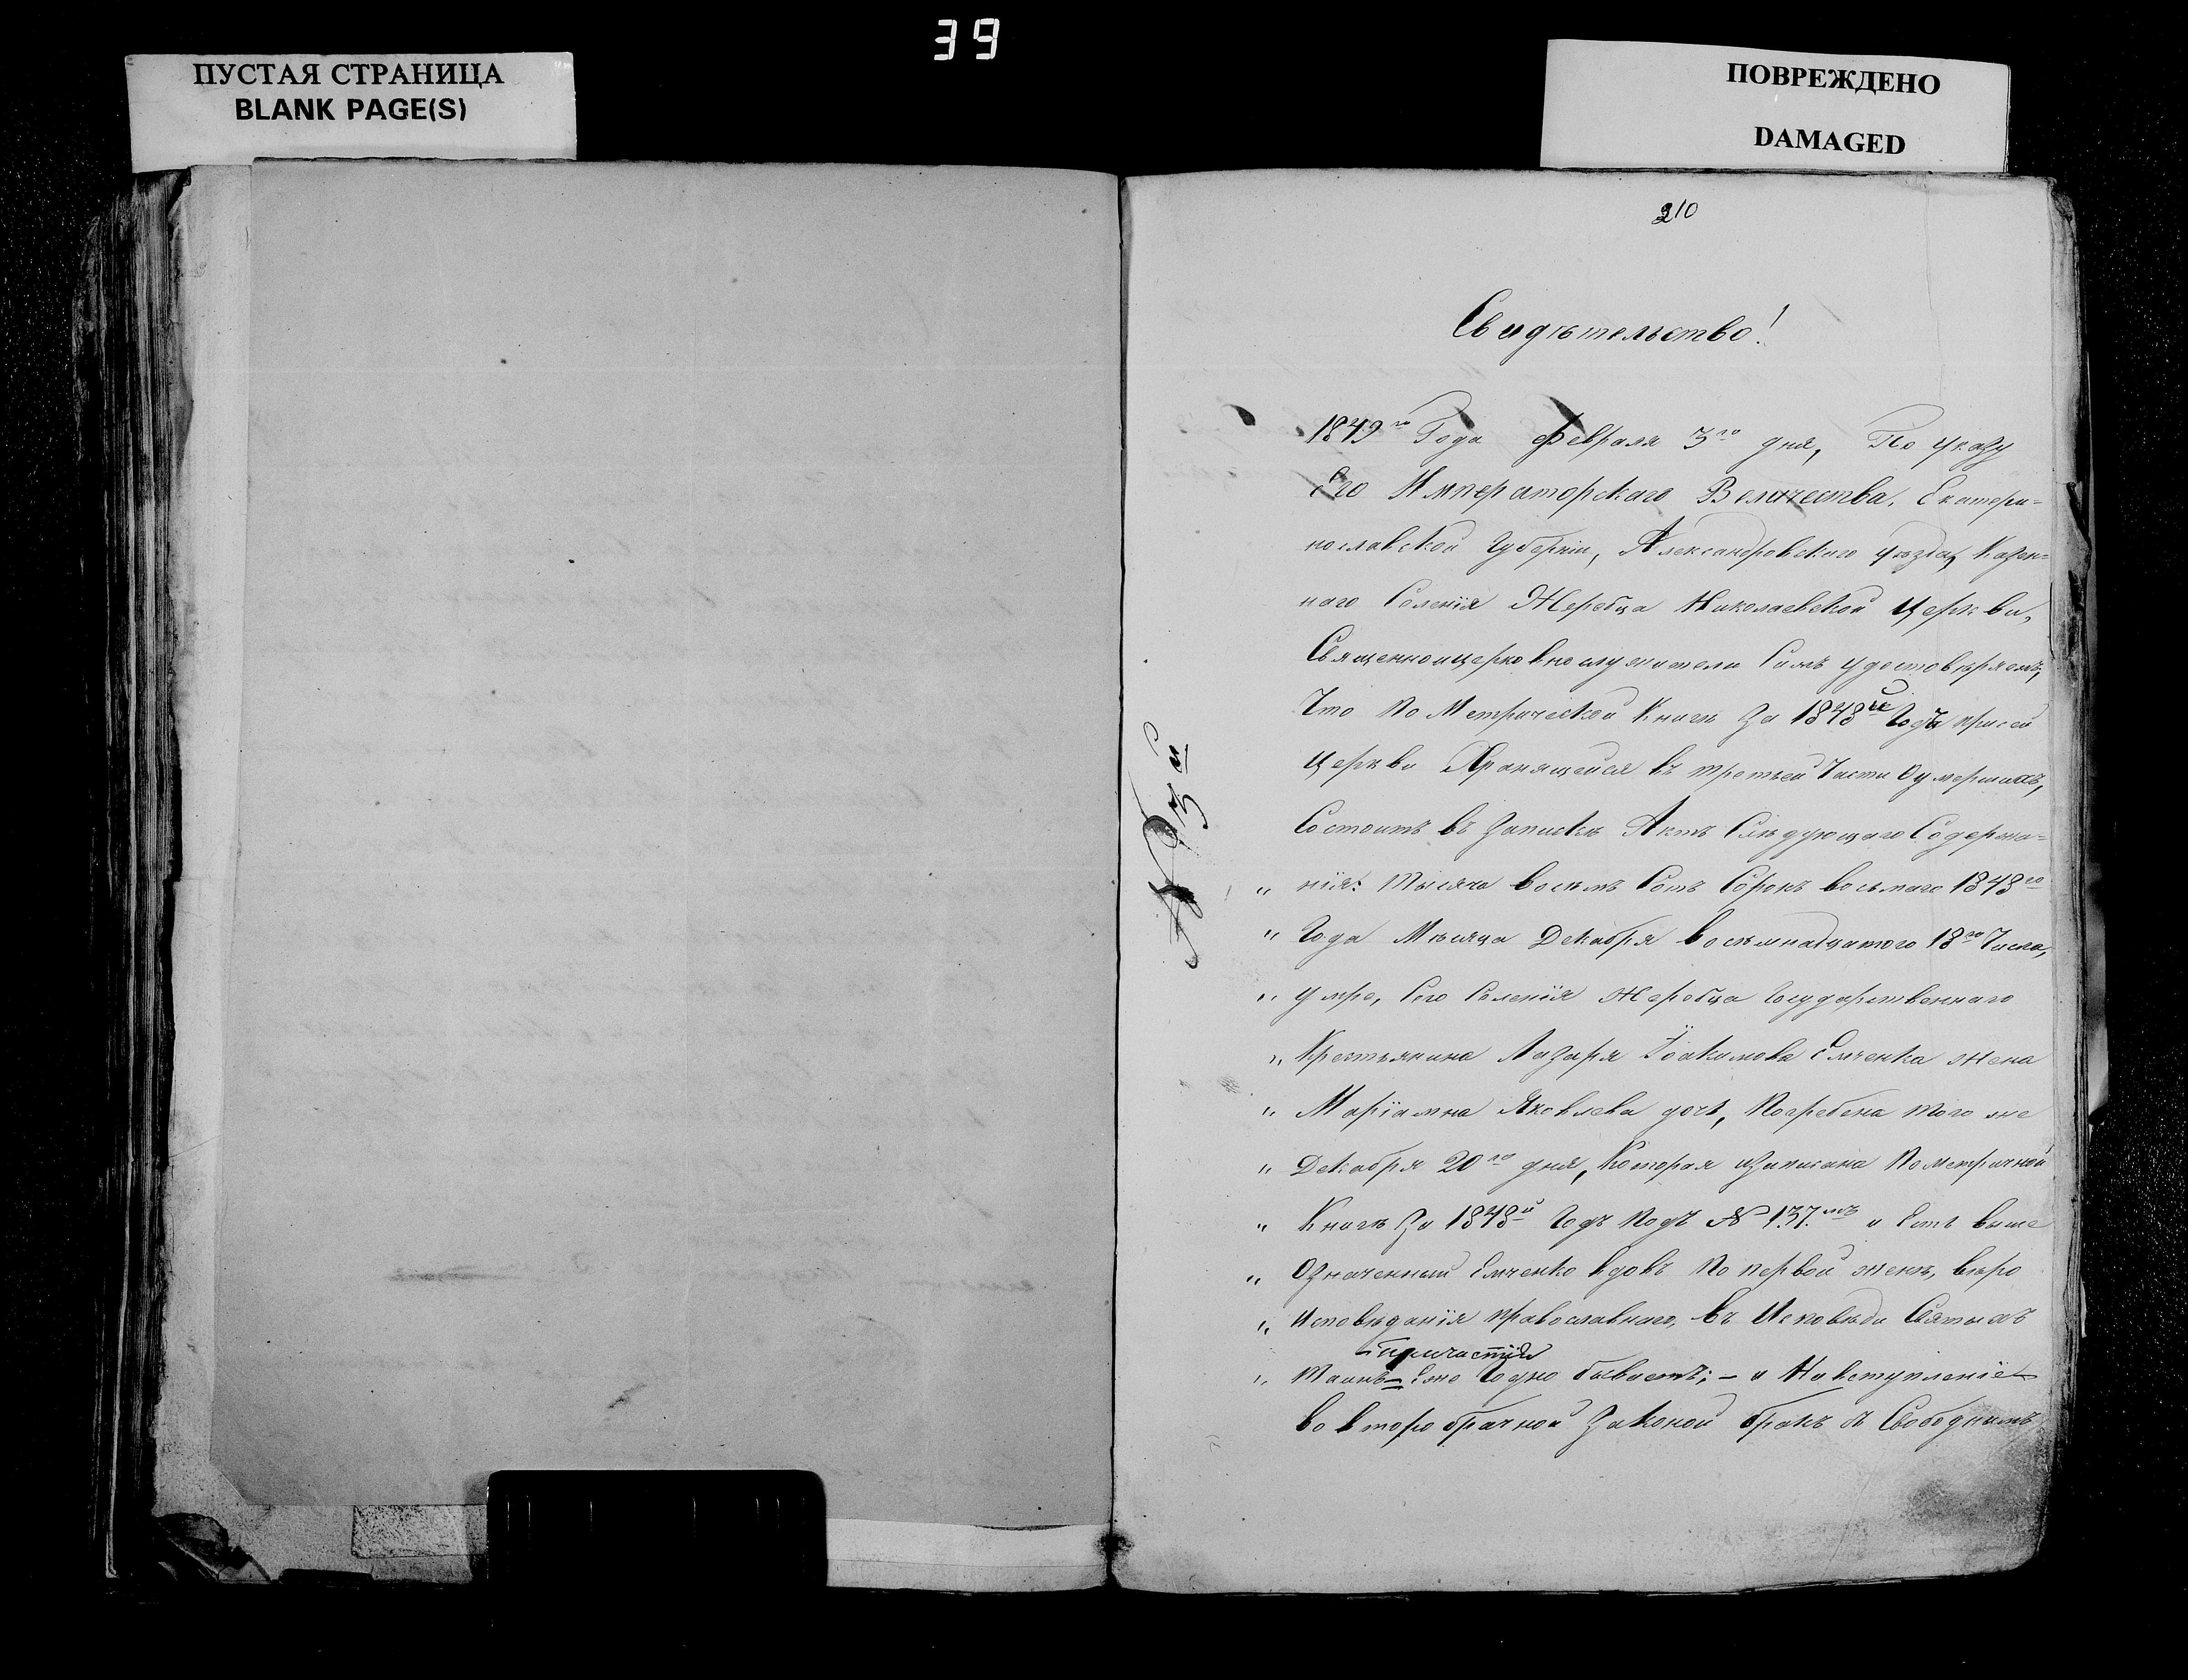 39
ПУСТАЯ СТРАНИЦА
BLANK PAGE(S)
ПОВРЕЖДЕНО
DAMAGED
210
Свидѣтельство!
1849го Года Февраля 3го дня, По указу
Его Императорскаго Величества. Екатери=
нославской Губерніи, Александровскаго уѣзда, Казен=
наго Селенія Жеребца Николаевской Церкви,
Священноцерковнослужители Симъ удостовѣряемъ,
Что по Метрической Книгѣ за 1848й Годъ присей
Церкви Хранящейся въ третьей Части Оумершихъ,
Состоитъ въ Запискѣ Актъ Слѣдующаго Содержа=
„ нія: Тысяча восемь Сотъ Сорокъ восьмаго 1848го
„ Года Мѣсяца Декабря восемнадцатого 18го Числа,
„ умре, Сего Селенія Жеребца Государственнаго
„ Крестьянина Лазаря Іоакимова Емченка жена
„ Маріамна Яковлева дочь, Погребена того же
„ Декабря 20го дня, Которая изаписана Пометричной
„ Книгѣ За 1848й Годъ Подъ № 137.мъ и Есть выше
„ Означенный Емченко вдовъ По первой женѣ, вѣро
„ Исповѣданія православнаго, въ Исповѣди Святыхъ
причастія
„ Таинъ Еже Годно бываетъ; – и Навступленіе
во второбрачной Законой бракъ Свободнымъ
№ 3й